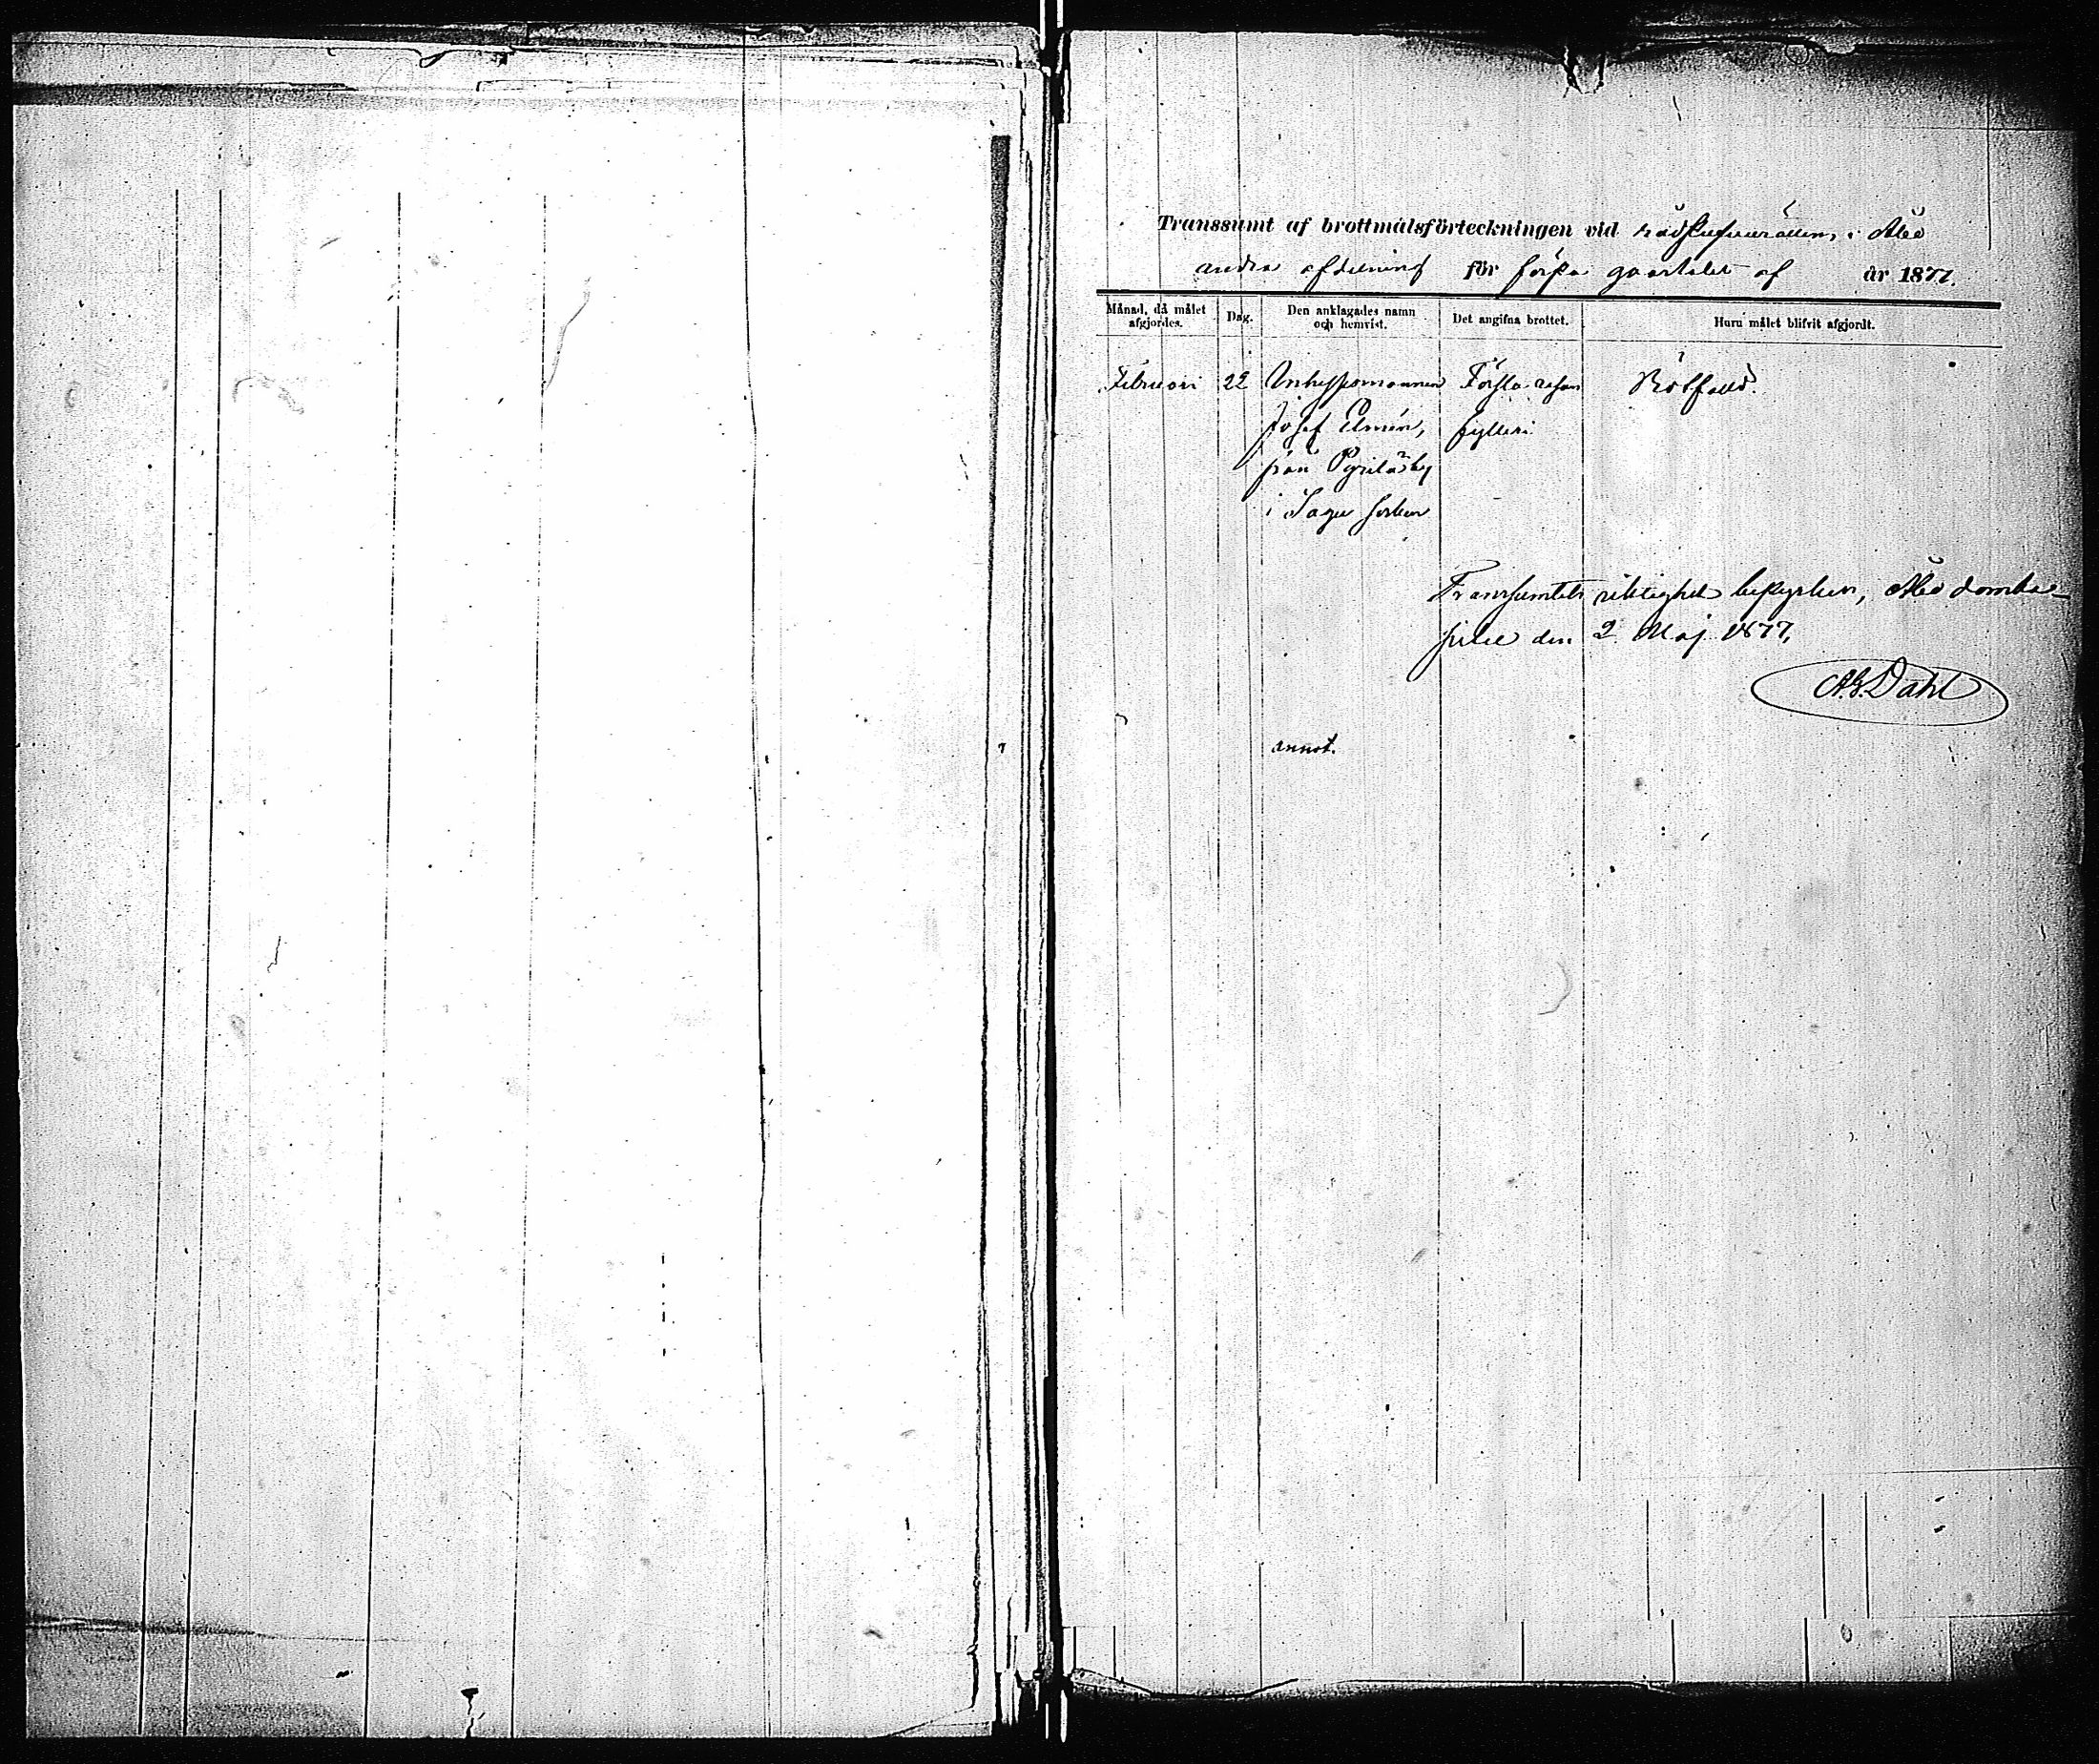 Transsumt af brottmålsförteckningen vid rådstufvurätten, i Åbo
andra afdelning för första qvartalet af år 1877.
Månad, då målet afgjordes. Dag. Den anklagades namn och hemvist. Det angifna brottet. Huru målet blifvit afgjordt.
Februari 22 Första resan Bötfälld.
Josef Elmén, fylleri
från by
i Sagu socken
Transsumtets riktighet bestyrker, Åbo domka-
pitel den 2 Maj 1877,
Dahl
annot.